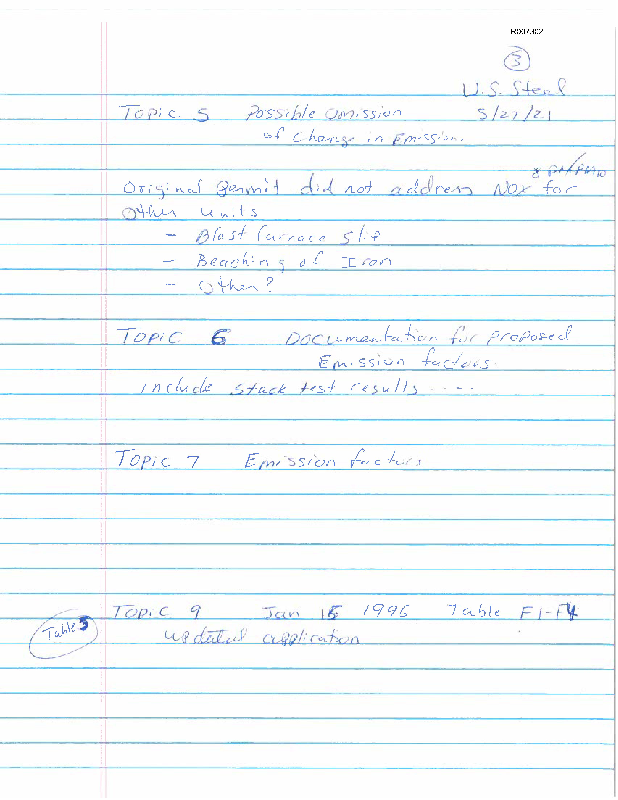 R007302
3
U.S. Steel
Topic 5 Possible Omission 5/27/21
of change in Emission.
& PM/PM10
Original Permit did not address NOx for
Other units
- Blast furnace Slip
- Beaching of Iron
- Other?
Topic 6 Documentation for proposed
Emission factors.
include stack test results ----
Topic 7 Emission factors
Topic 9 Jan 15 1996 Table F1-F4
Table 3 updated application